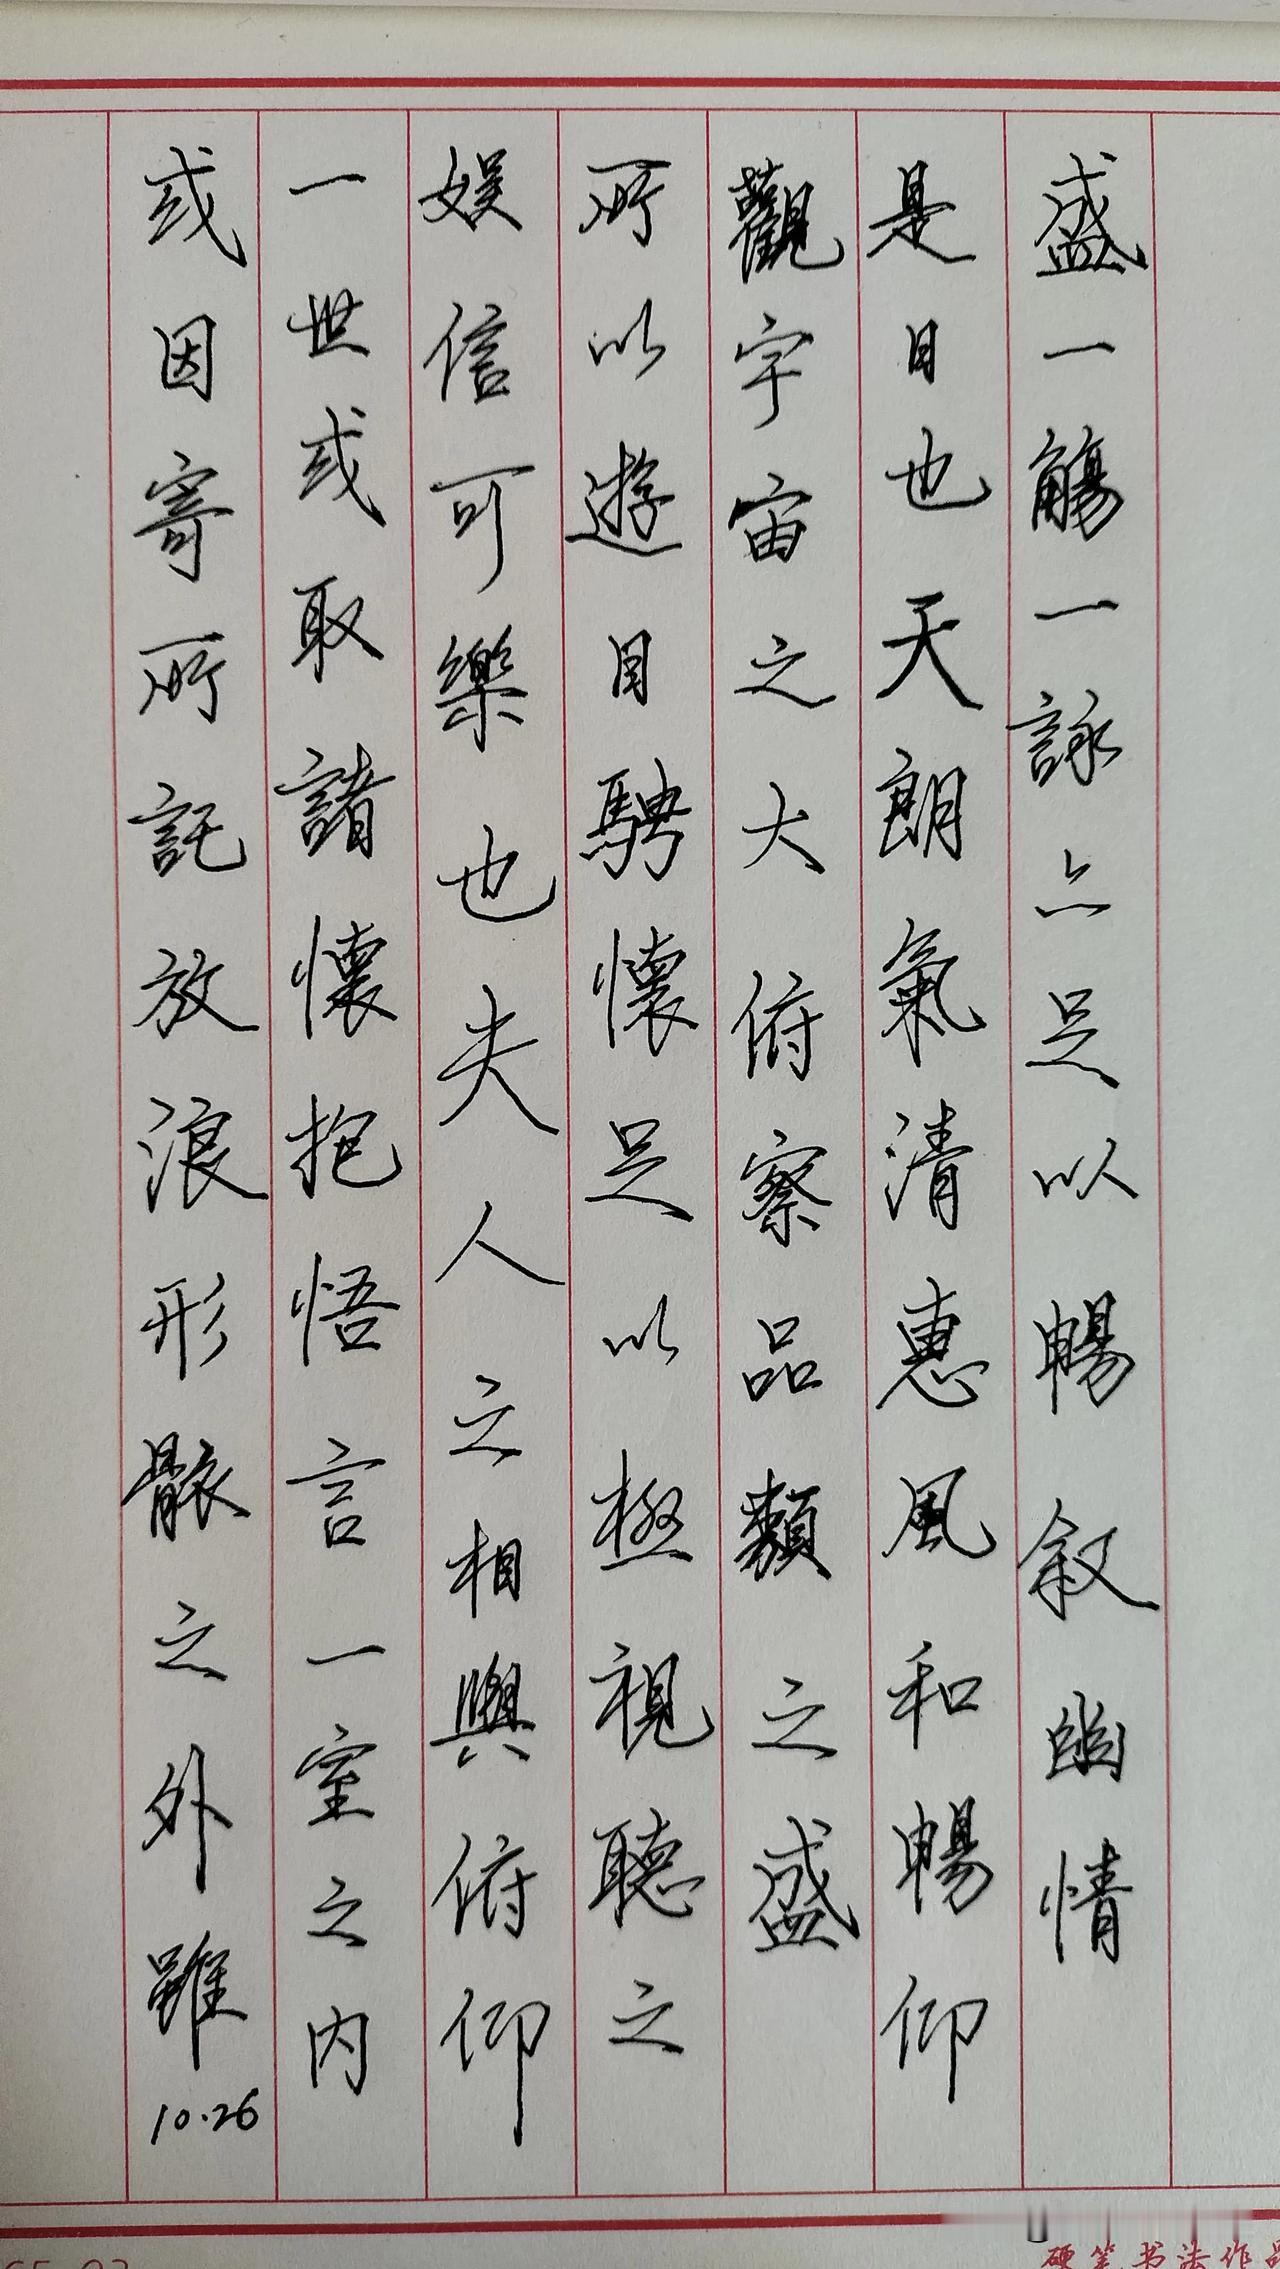 盛一觴一詠亦足以暢叙幽情
是日也天朗氣清惠風和暢仰
觀宇宙之大俯察品類之盛
所以遊目騁懷足以極視聽之
娱信可樂也夫人之相與俯仰
一世或取諸懷抱悟言一室之内
或因寄所託放浪形骸之外雖
10.26
硬笔书法作品